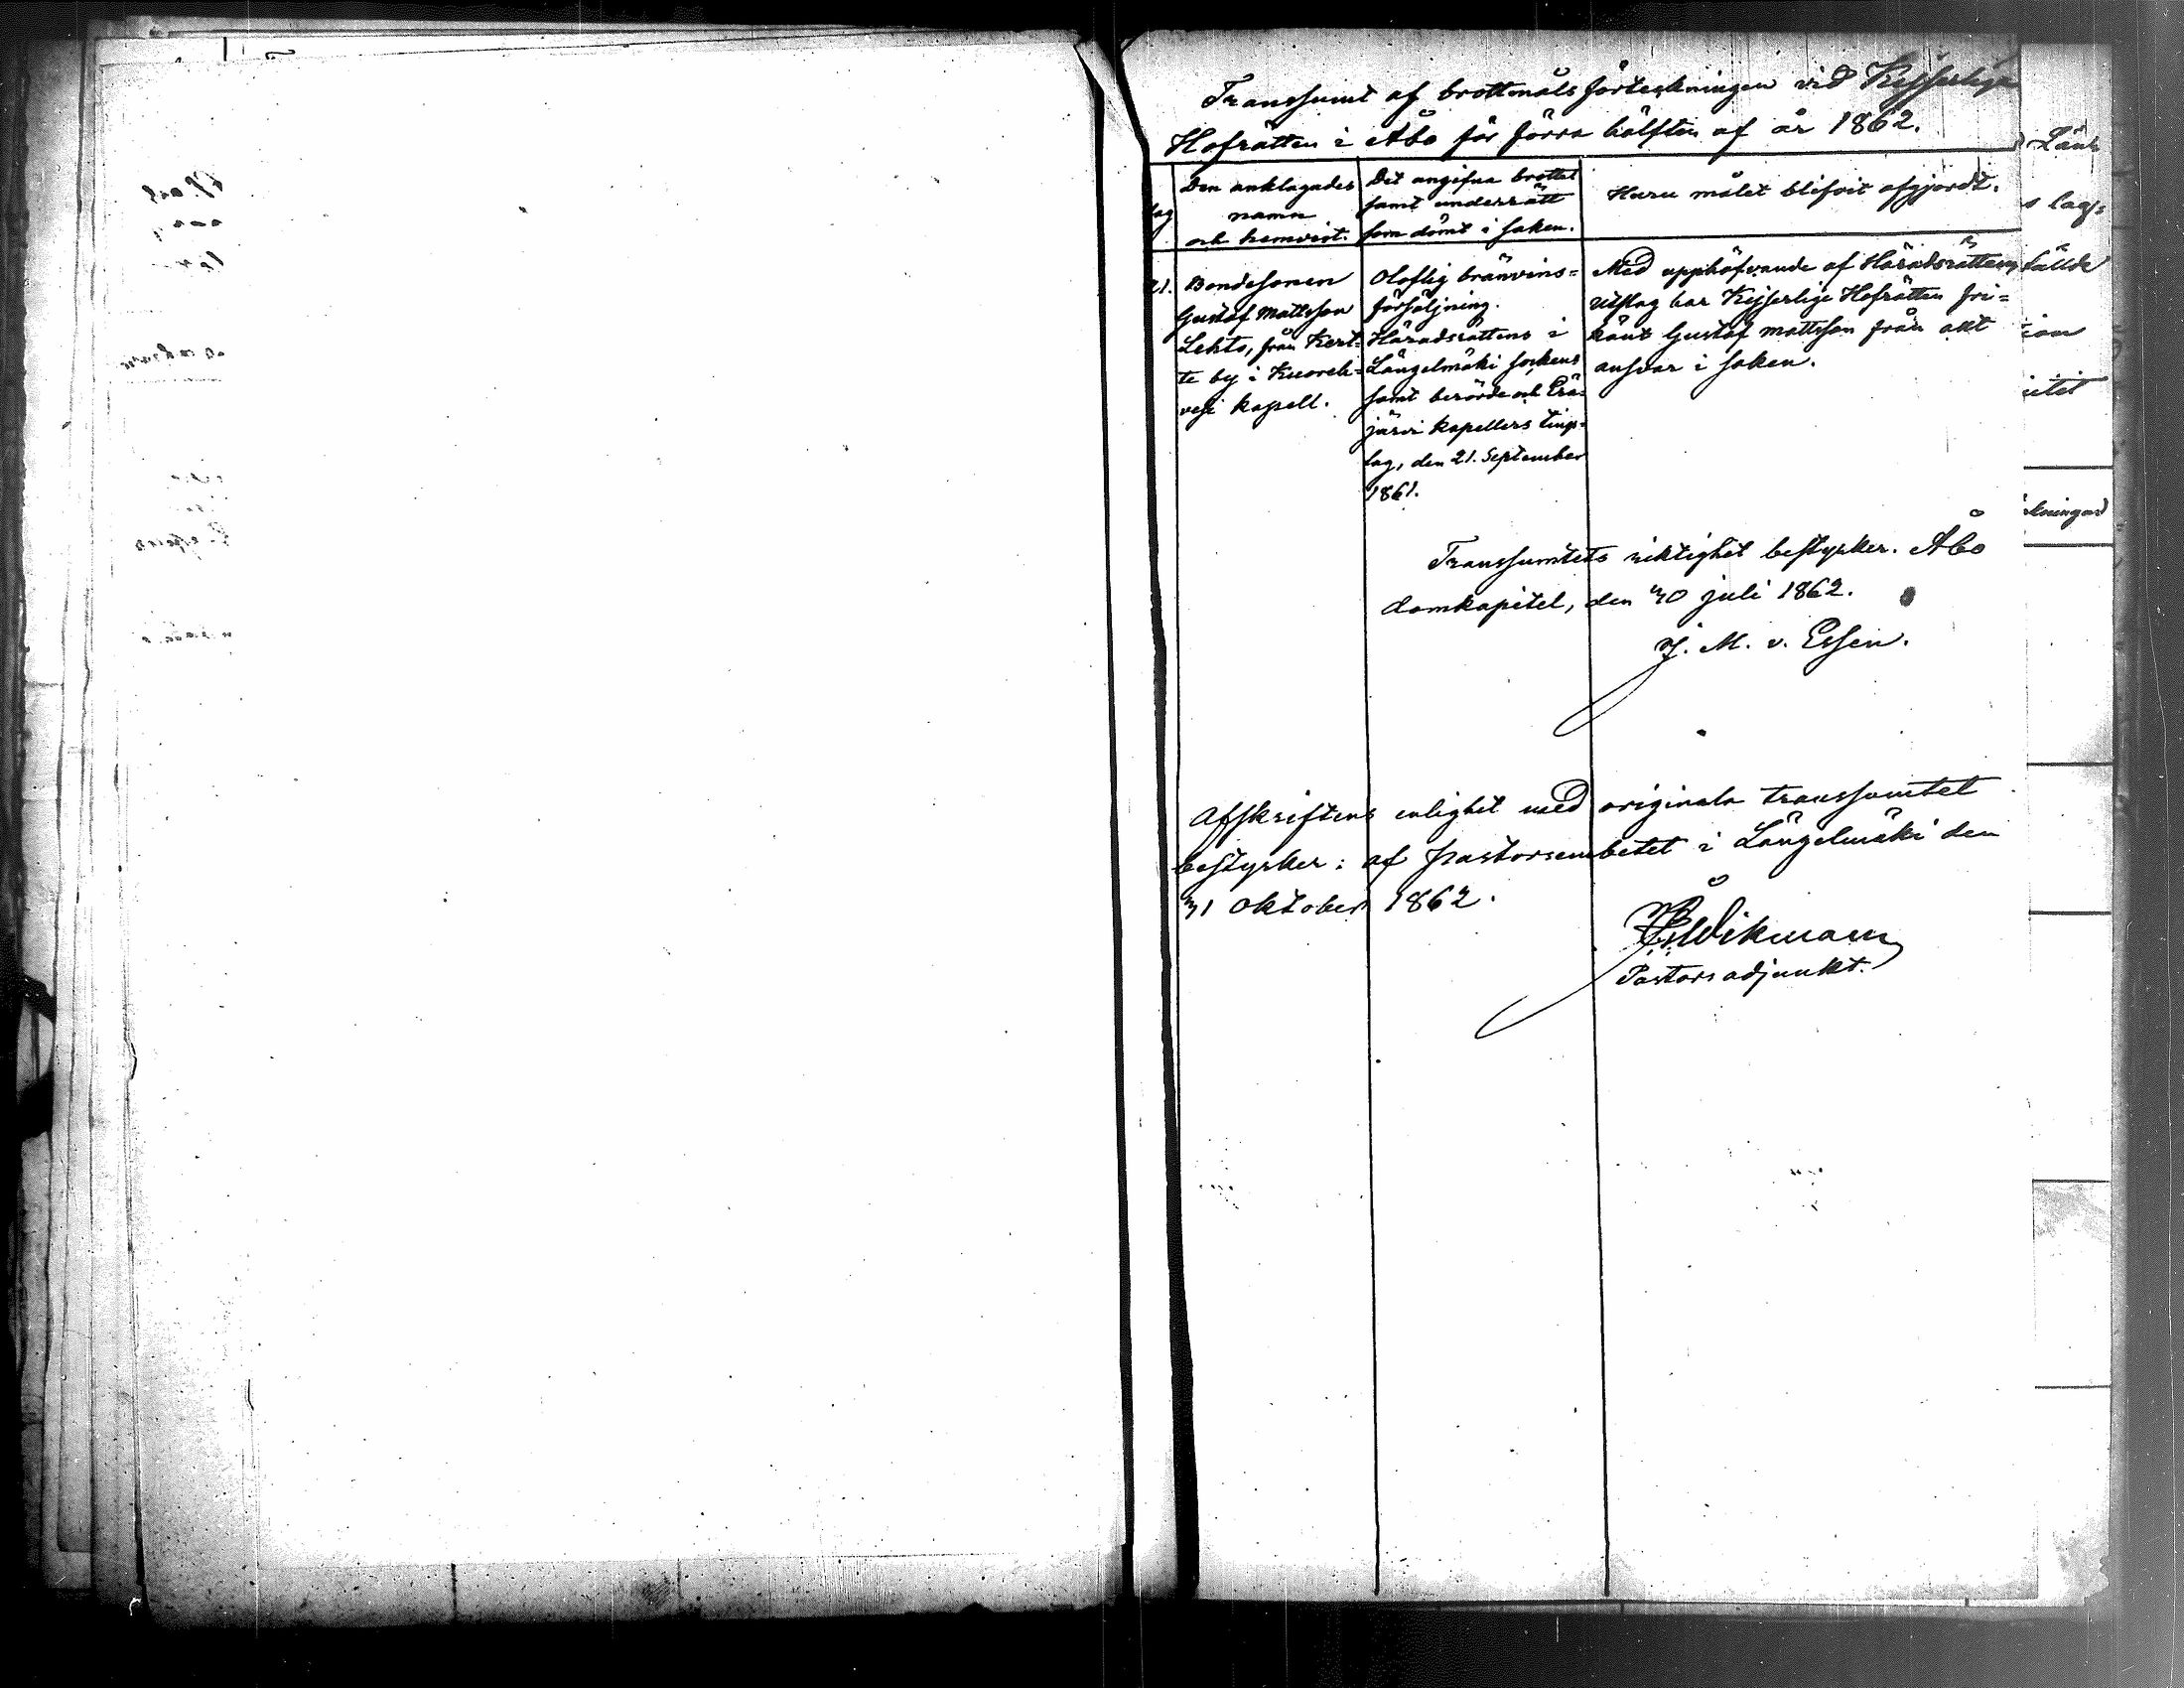 Transsumt af brottmålsförteckningen vid Kejserliga
Hofrätten i Åbo för förra hälften af år 1862.
dag
Den anklagades
namn
och hemvist.
Det angifna brottet
samt underrätt
som dömt i saken.
Huru målet blifvit afgjordt.
21.
Bondesonen
Gustaf Mattsson
Lehto, från Kert-
te by i Kuoreh-
vesi kapell.
Oloflig bränvins-
försäljning.
Häradsrättens i
Längelmäki sockens
samt berörde och Erä-
järvi kapellers tings-
lag, den 21. September
1861.
Med upphäfvande af Häradsrättens
utslag har Kejserlige Hofrätten fri-
känt Gustaf Mattsson från allt
ansvar i saken.
Transsumtets riktighet bestyrker. Åbo
domkapitel, den 30 juli 1862.
J. M. v. Essen.
Afskriftens enlighet med originala transsumtet
bestyrker: af pastorsembetet i Längelmäki den
31 Oktober 1862.
Wikman
Pastorsadjunkt.
Län
s lag
fällde
tion
utet
kningar